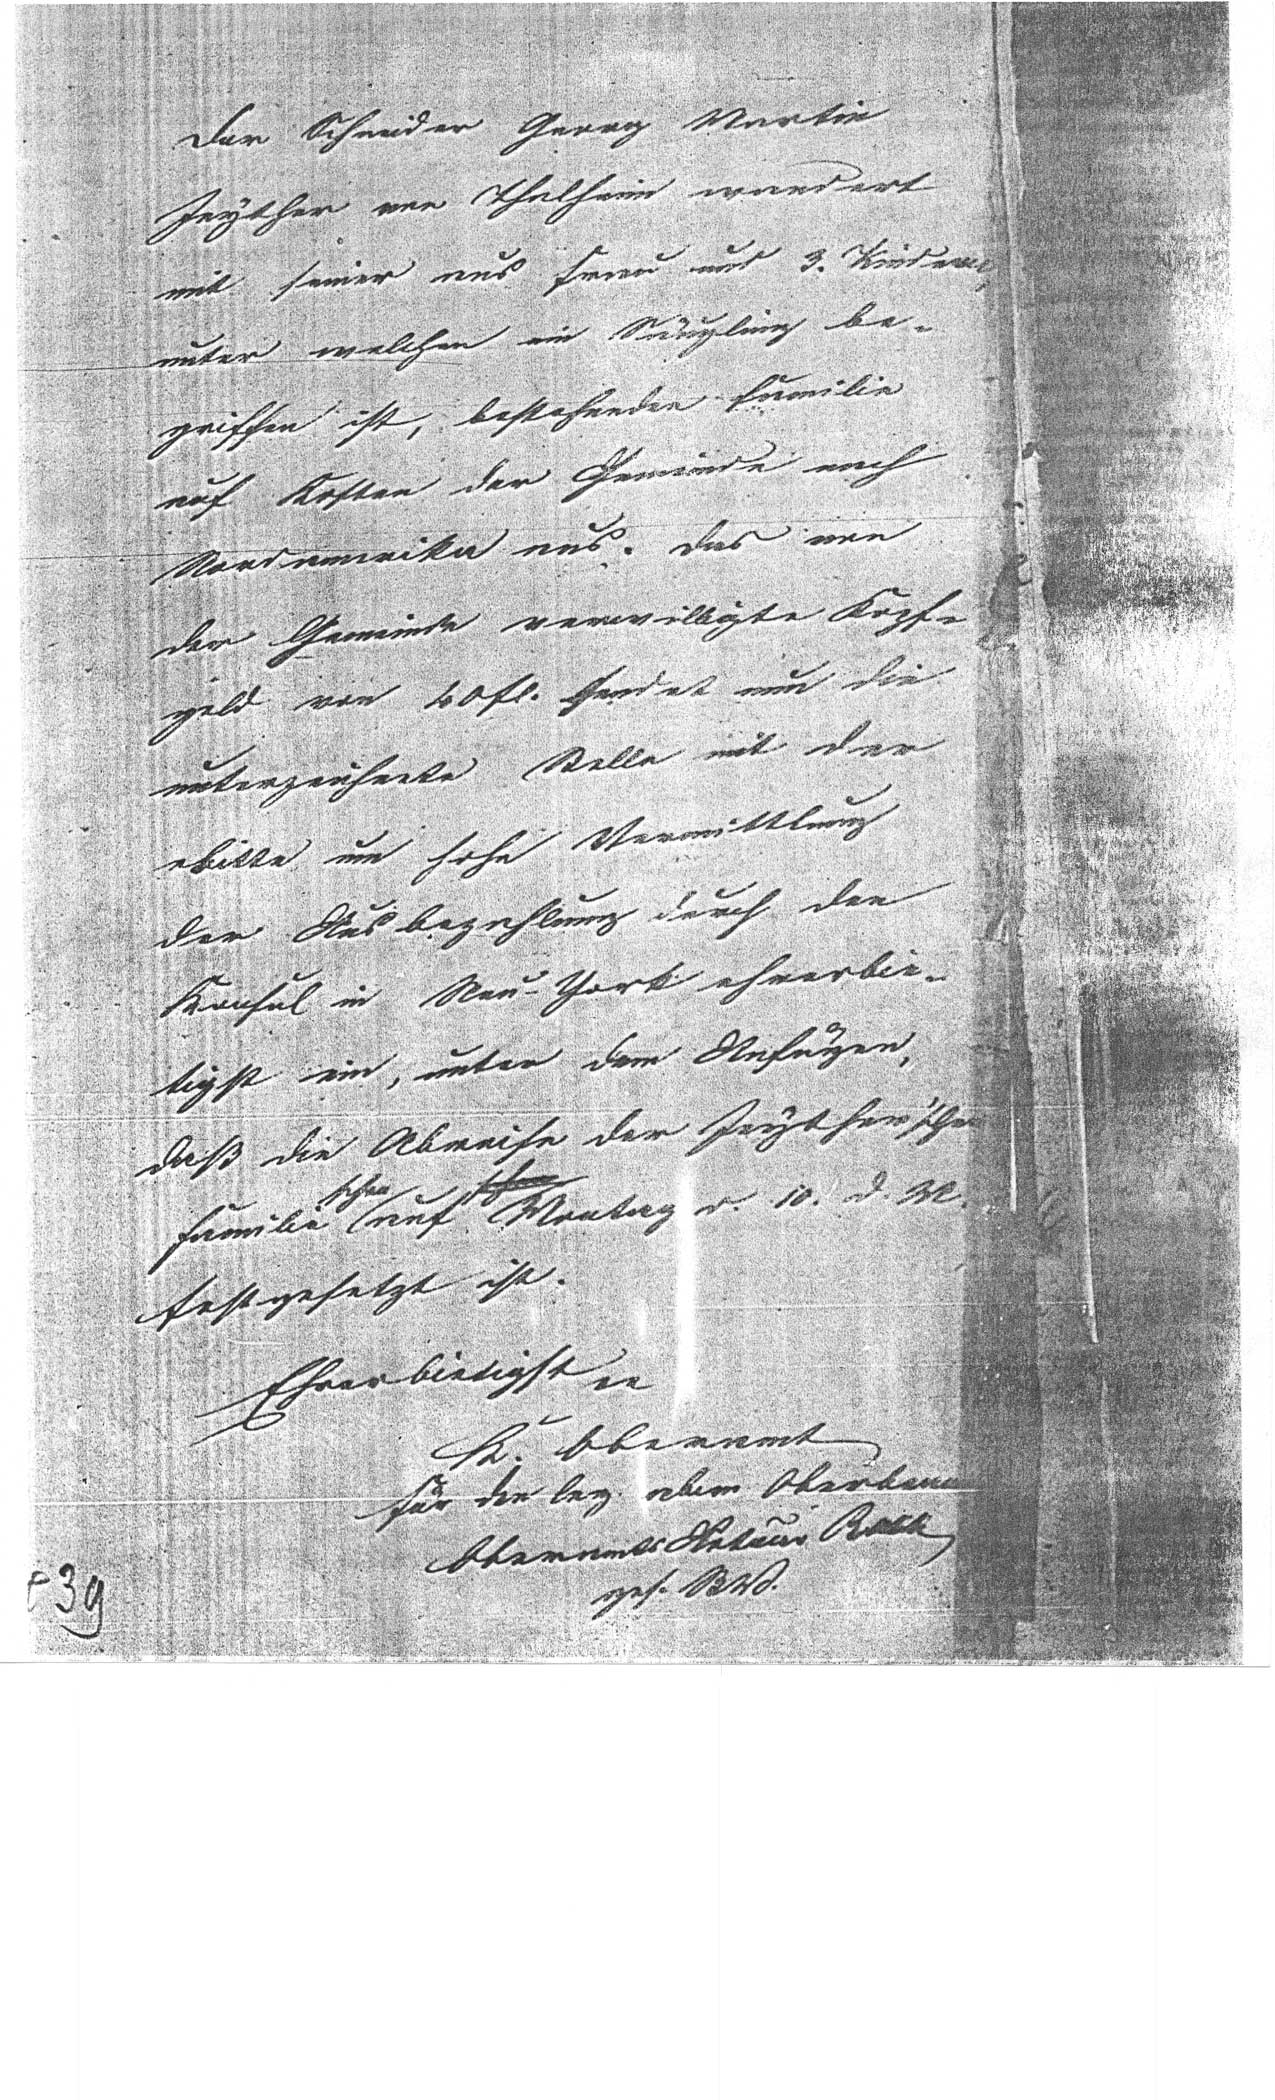 Der Schneider Georg Martin
Jeyther von Thalheim wandert
mit seiner aus Frau und 3. Kindern,
unter welchen ein Säugling be-
griffen ist, bestehenden Familie
auf Kosten der Gemeinde nach
Nordamerika aus. Das von
der Gemeinde verwilligte Kopf-
geld von 40 fl. sendet nun die
unterzeichnete Stelle mit der
Bitte um hohe Vermittlung
der Ausbezahlung durch den
Konsul in Neu-York ehrerbie-
tigst ein, unter dem Anfügen,
daß die Abreise der Jeyther'schen
Familie schon auf Montag d. 10. d. M.
festgesetzt ist.
Ehrerbietigst
K. Oberamt
Für den
Oberamts Aktuar
ges.
39